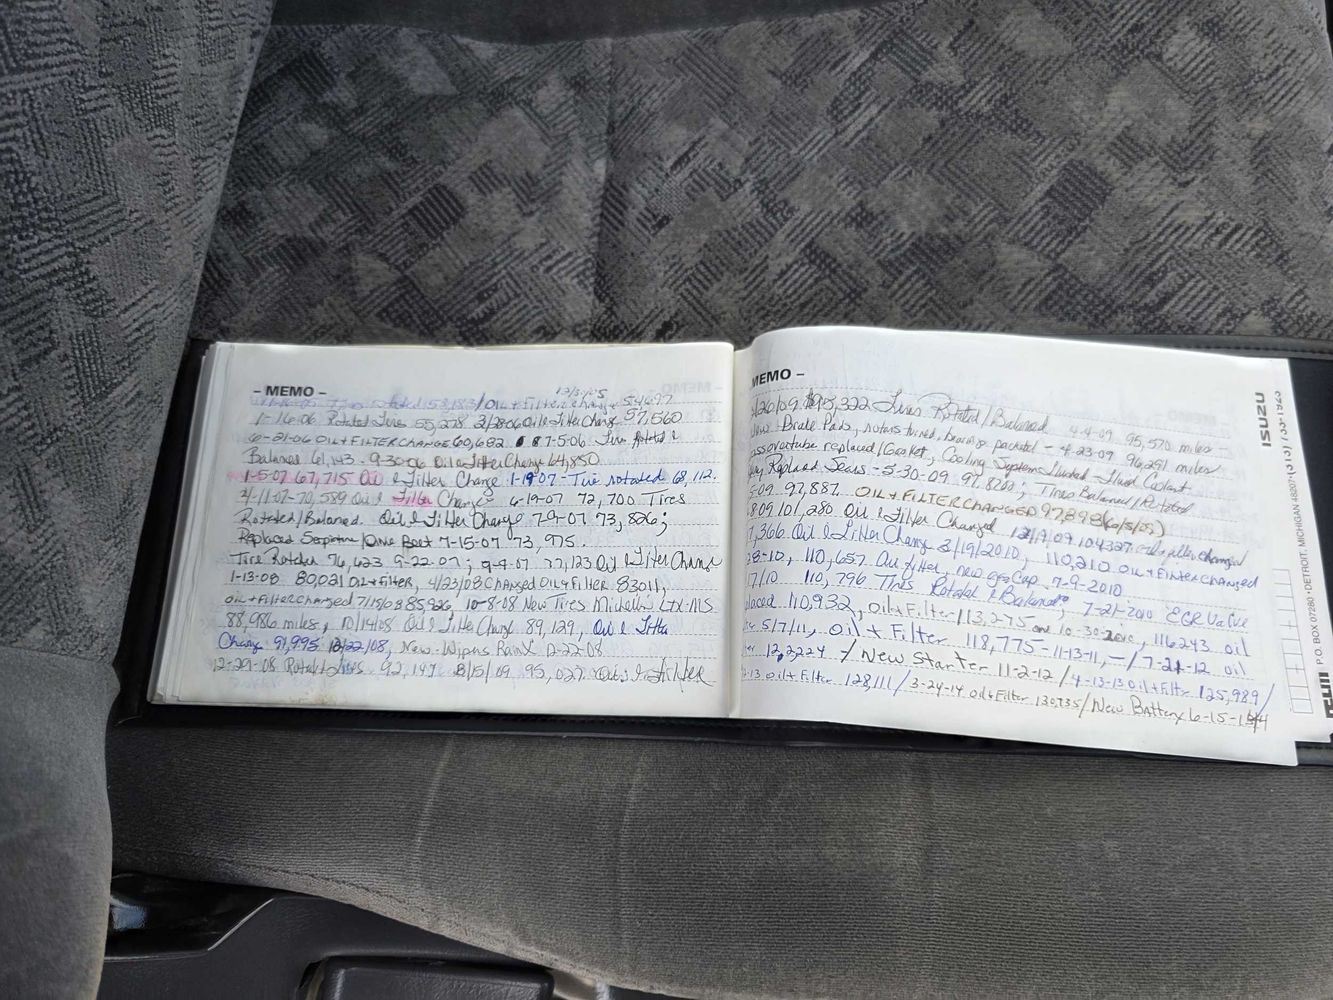 - MEMO -
12/31/05
Rotated 53,183/Oil + Filter Change 54,677
1-16-06 Rotated Tires 55,278 2/28/06 Oil & Filter Change 57,560
6-21-06 OIL + FILTER CHANGE 60,692 7-5-06 Tires Rotated &
Balanced 61,143. 9-30-06 Oil & Filter Change 64,850
1-5-07 67,715 Oil & Filter Change 1-19-07 - Tire rotated 68,112.
4-11-07-70,589 Oil & Filter Change 6-19-07 72,700 Tires
Rotated/Balanced. Oil & Filter Change 7-9-07 73,826;
Replaced Serpentine/Drive Belt 7-15-07 73,975.
Tire Rotated 76,623 9-22-07; 9-9-07 77,123 Oil & Filter Change
1-13-08 80,021 OIL + FILTER, 4/23/08 Changed OIL + FILTER 83011,
OIL + FILTER Changed 7/15/08 85,926, 10-8-08 New Tires Michelin LTX-M/S
88,986 miles, 10/14/08 Oil & Filter Change 89,129, Oil & Filter
Change 91,995 12/22/08, New Wipers RainX 12-22-08
12-29-08 Rotated tires 92,147 3/15/09 95,027 Oil & Filter
MEMO -
/26/09 95,322 Tires Rotated/Balanced 4-4-09 95,570 miles -
New Brake Pads, rotors turned, bearings packed - 4-23-09 96,291 miles
crossover tube replaced/Gasket, Cooling System flushed - Flush Coolant
Replaced Seals - 5-30-09 97,820; Tires Balanced/Rotated
-09 97,887 OIL + FILTER CHANGED 97,893 (6/5/09)
8-09 101,280 Oil & Filter Changed 12/9/09 104327 oil & filter changed
7,366 Oil & Filter Change 3/19/2010, 110,210 OIL + FILTER CHANGED
28-10, 110,657 Oil & filter, new gas cap 7-9-2010
7/10 110,796 Tires Rotated & Balanced 7-21-2010 EGR Valve
placed 110,932, Oil + Filter 113,275 on 10-30-2010, 116,243 oil
5/7/11, Oil + Filter 118,775-11-13-11, -/7-21-12 oil
122,224 / New Starter 11-2-12 / 4-13-13 Oil + Filter 125,989/
-13 Oil + Filter 128,111/ 3-24-14 Oil + Filter 130,735/ New Battery 6-15-14
ISUZU
P.O. BOX 07280 • DETROIT, MICHIGAN 48207 • (313)